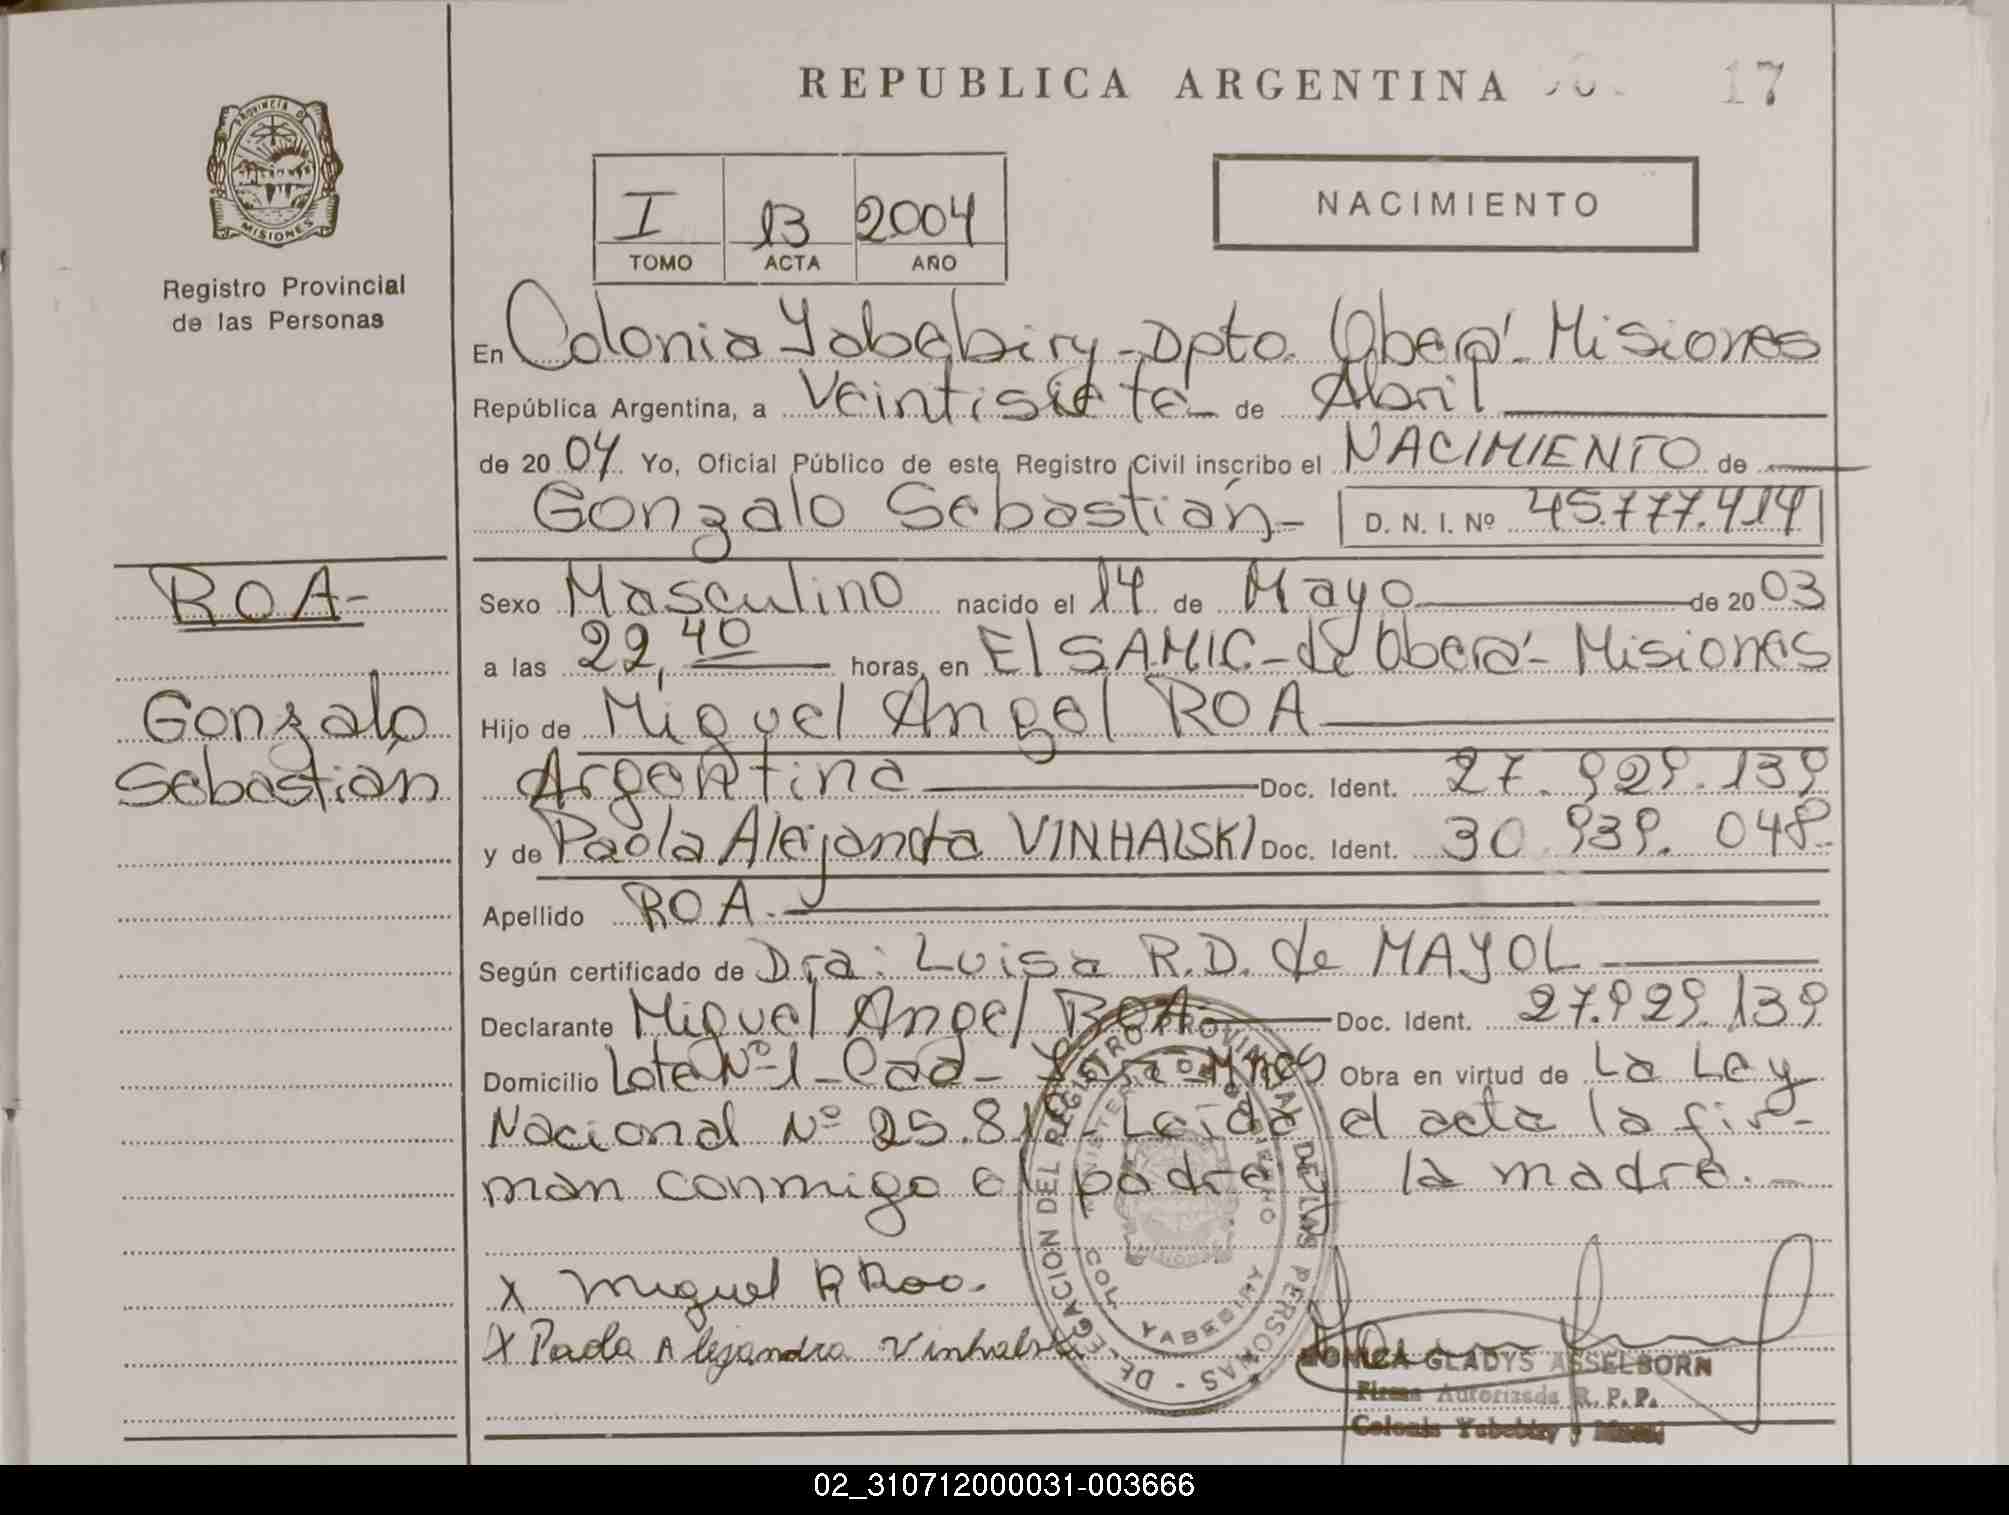 REPUBLICA ARGENTINA
17
PROVINCIA DE
MISIONES
Registro Provincial
de las Personas
I 13 2004
TOMO ACTA AÑO
NACIMIENTO
En Colonia Yabebiry - Dpto. Oberá - Misiones
República Argentina, a Veintisiete de Abril
de 2004 Yo, Oficial Público de este Registro Civil inscribo el NACIMIENTO de
Gonzalo Sebastián - D. N. I. Nº 45.777.414
ROA-
Gonzalo
Sebastián
Sexo Masculino nacido el 14 de Mayo de 2003
a las 22,40 horas, en El SAMIC - de Oberá - Misiones
Hijo de Miguel Angel ROA
Argentina Doc. Ident. 27.929.139
y de Paola Alejandra VINHALSKI Doc. Ident. 30.939.048-
Apellido ROA.
Según certificado de Dra: Luisa R.D. de MAYOL
Declarante Miguel Angel ROA Doc. Ident. 27.929.139
Domicilio Lote Nº 1 - Mnes Obra en virtud de La Ley
Nacional Nº 25.819 - Leída el acta la fir-
man conmigo el padre y la madre. -
X Miguel A Roa.
X Paola Alejandra Vinhalski
DELEGACION DEL REGISTRO PROVINCIAL DE LAS PERSONAS -
COL. YABEBIRY
MONICA GLADYS ASSELBORN
Firma Autorizada R.P.P.
Colonia Yabebiry
02_310712000031-003666